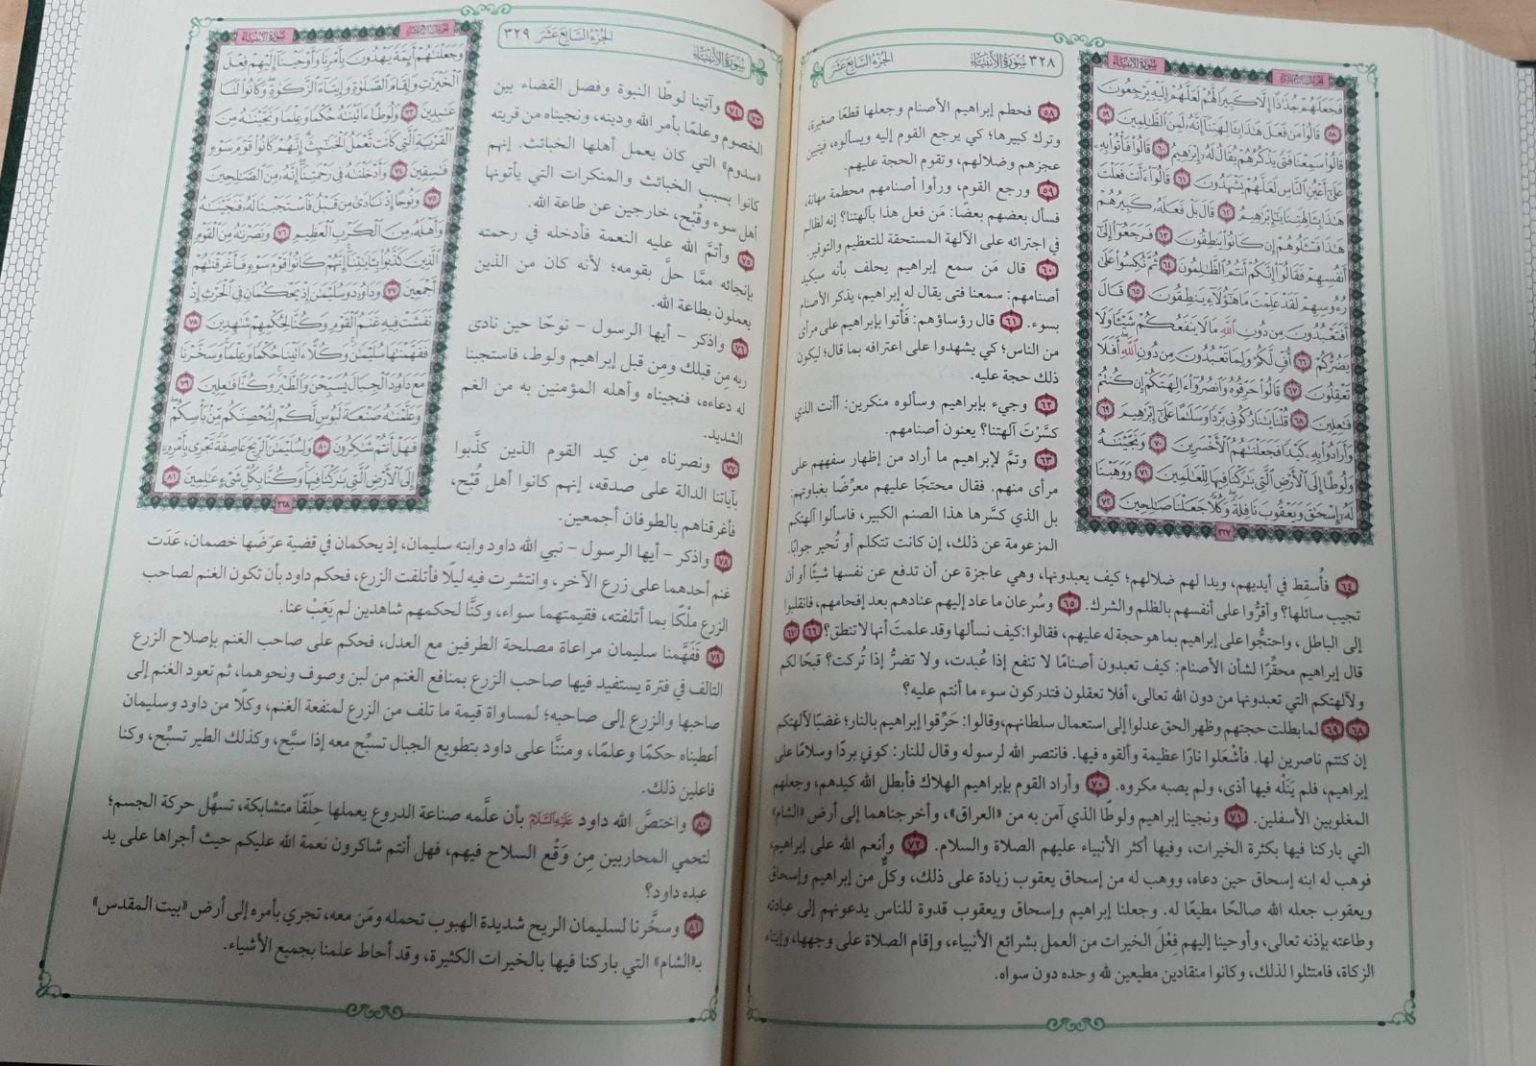 ٣٢٨ سُورَةُ الأَنْبِيَاء الجُزْءُ السَّابِعَ عَشَرَ
سُورَةُ الأَنْبِيَاء
فَجَعَلَهُمْ جُذَٰذًا إِلَّا كَبِيرًا لَّهُمْ لَعَلَّهُمْ إِلَيْهِ يَرْجِعُونَ
٥٨ قَالُوا۟ مَن فَعَلَ هَٰذَا بِـَٔالِهَتِنَآ إِنَّهُۥ لَمِنَ ٱلظَّٰلِمِينَ ٥٩
قَالُوا۟ سَمِعْنَا فَتًى يَذْكُرُهُمْ يُقَالُ لَهُۥٓ إِبْرَٰهِيمُ ٦٠ قَالُوا۟ فَأْتُوا۟ بِهِۦ
عَلَىٰٓ أَعْيُنِ ٱلنَّاسِ لَعَلَّهُمْ يَشْهَدُونَ ٦١ قَالُوٓا۟ ءَأَنتَ فَعَلْتَ
هَٰذَا بِـَٔالِهَتِنَا يَٰٓإِبْرَٰهِيمُ ٦٢ قَالَ بَلْ فَعَلَهُۥ كَبِيرُهُمْ
هَٰذَا فَسْـَٔلُوهُمْ إِن كَانُوا۟ يَنطِقُونَ ٦٣ فَرَجَعُوٓا۟ إِلَىٰٓ
أَنفُسِهِمْ فَقَالُوٓا۟ إِنَّكُمْ أَنتُمُ ٱلظَّٰلِمُونَ ٦٤ ثُمَّ نُكِسُوا۟ عَلَىٰ
رُءُوسِهِمْ لَقَدْ عَلِمْتَ مَا هَٰٓؤُلَآءِ يَنطِقُونَ ٦٥ قَالَ
أَفَتَعْبُدُونَ مِن دُونِ ٱللَّهِ مَا لَا يَنفَعُكُمْ شَيْـًٔا وَلَا
يَضُرُّكُمْ ٦٦ أُفٍّ لَّكُمْ وَلِمَا تَعْبُدُونَ مِن دُونِ ٱللَّهِ أَفَلَا
تَعْقِلُونَ ٦٧ قَالُوا۟ حَرِّقُوهُ وَٱنصُرُوٓا۟ ءَالِهَتَكُمْ إِن كُنتُمْ
فَٰعِلِينَ ٦٨ قُلْنَا يَٰنَارُ كُونِى بَرْدًا وَسَلَٰمًا عَلَىٰٓ إِبْرَٰهِيمَ ٦٩
وَأَرَادُوا۟ بِهِۦ كَيْدًا فَجَعَلْنَٰهُمُ ٱلْأَخْسَرِينَ ٧٠ وَنَجَّيْنَٰهُ
وَلُوطًا إِلَى ٱلْأَرْضِ ٱلَّتِى بَٰرَكْنَا فِيهَا لِلْعَٰلَمِينَ ٧١ وَوَهَبْنَا
لَهُۥٓ إِسْحَٰقَ وَيَعْقُوبَ نَافِلَةً وَكُلًّا جَعَلْنَا صَٰلِحِينَ ٧٢
٣٢٧
٥٨ فحطم إبراهيم الأصنام وجعلها قطعًا صغيرة،
وترك كبيرها؛ كي يرجع القوم إليه ويسألوه، فيتبين
عجزهم وضلالهم، وتقوم الحجة عليهم.
٥٩ ورجع القوم، ورأوا أصنامهم محطمة مهانة،
فسأل بعضهم بعضًا: مَن فعل هذا بآلهتنا؟ إنه لظالم
في اجترائه على الآلهة المستحقة للتعظيم والتوقير.
٦٠ قال مَن سمع إبراهيم يحلف بأنه سيكيد
أصنامهم: سمعنا فتى يقال له إبراهيم، يذكر الأصنام
بسوء. ٦١ قال رؤساؤهم: فأْتوا بإبراهيم على مرأى
من الناس؛ كي يشهدوا على اعترافه بما قال؛ ليكون
ذلك حجة عليه.
٦٢ وجيء بإبراهيم وسألوه منكرين: أأنت الذي
كسَّرْتَ آلهتنا؟ يعنون أصنامهم.
٦٣ وتمَّ لإبراهيم ما أراد من إظهار سفههم على
مرأى منهم. فقال محتجًا عليهم معرِّضًا بغباوتهم:
بل الذي كسَّرها هذا الصنم الكبير، فاسألوا آلهتكم
المزعومة عن ذلك، إن كانت تتكلم أو تُحير جوابًا.
٦٤ فأُسقط في أيديهم، وبدا لهم ضلالهم؛ كيف يعبدونها، وهي عاجزة عن أن تدفع عن نفسها شيئًا أو أن
تجيب سائلها؟ وأقرُّوا على أنفسهم بالظلم والشرك. ٦٥ وسُرعان ما عاد إليهم عنادهم بعد إفحامهم، فانقلبوا
إلى الباطل، واحتجُّوا على إبراهيم بما هو حجة له عليهم، فقالوا: كيف نسألها وقد علمتَ أنها لا تنطق؟ ٦٦ ٦٧
قال إبراهيم محقِّرًا لشأن الأصنام: كيف تعبدون أصنامًا لا تنفع إذا عُبدت، ولا تضرُّ إذا تُركت؟ قبحًا لكم
ولآلهتكم التي تعبدونها من دون الله تعالى، أفلا تعقلون فتدركون سوء ما أنتم عليه؟
٦٨ ٦٩ لما بطلت حجتهم وظهر الحق عدلوا إلى استعمال سلطانهم، وقالوا: حَرِّقوا إبراهيم بالنار؛ غضبًا لآلهتكم
إن كنتم ناصرين لها. فأشْعَلوا نارًا عظيمة وألقوه فيها. فانتصر الله لرسوله وقال للنار: كوني بردًا وسلامًا على
إبراهيم، فلم يَنَلْه فيها أذى، ولم يصبه مكروه. ٧٠ وأراد القوم بإبراهيم الهلاك فأبطل الله كيدهم، وجعلهم
المغلوبين الأسفلين. ٧١ ونجينا إبراهيم ولوطًا الذي آمن به من «العراق»، وأخرجناهما إلى أرض «الشام»
التي باركنا فيها بكثرة الخيرات، وفيها أكثر الأنبياء عليهم الصلاة والسلام. ٧٢ وأنعم الله على إبراهيم،
فوهب له ابنه إسحاق حين دعاه، ووهب له من إسحاق يعقوب زيادة على ذلك، وكلٌّ من إبراهيم وإسحاق
ويعقوب جعله الله صالحًا مطيعًا له. وجعلنا إبراهيم وإسحاق ويعقوب قدوة للناس يدعونهم إلى عبادته
وطاعته بإذنه تعالى، وأوحينا إليهم فِعْلَ الخيرات من العمل بشرائع الأنبياء، وإقام الصلاة على وجهها، وإيتاء
الزكاة، فامتثلوا لذلك، وكانوا منقادين مطيعين لله وحده دون سواه.
سُورَةُ الأَنْبِيَاء الجُزْءُ السَّابِعَ عَشَرَ ٣٢٩
سُورَةُ الأَنْبِيَاء
وَجَعَلْنَٰهُمْ أَئِمَّةً يَهْدُونَ بِأَمْرِنَا وَأَوْحَيْنَآ إِلَيْهِمْ فِعْلَ
ٱلْخَيْرَٰتِ وَإِقَامَ ٱلصَّلَوٰةِ وَإِيتَآءَ ٱلزَّكَوٰةِ وَكَانُوا۟ لَنَا
عَٰبِدِينَ ٧٣ وَلُوطًا ءَاتَيْنَٰهُ حُكْمًا وَعِلْمًا وَنَجَّيْنَٰهُ مِنَ
ٱلْقَرْيَةِ ٱلَّتِى كَانَت تَّعْمَلُ ٱلْخَبَٰٓئِثَ إِنَّهُمْ كَانُوا۟ قَوْمَ سَوْءٍ
فَٰسِقِينَ ٧٤ وَأَدْخَلْنَٰهُ فِى رَحْمَتِنَآ إِنَّهُۥ مِنَ ٱلصَّٰلِحِينَ
٧٥ وَنُوحًا إِذْ نَادَىٰ مِن قَبْلُ فَٱسْتَجَبْنَا لَهُۥ فَنَجَّيْنَٰهُ
وَأَهْلَهُۥ مِنَ ٱلْكَرْبِ ٱلْعَظِيمِ ٧٦ وَنَصَرْنَٰهُ مِنَ ٱلْقَوْمِ
ٱلَّذِينَ كَذَّبُوا۟ بِـَٔايَٰتِنَآ إِنَّهُمْ كَانُوا۟ قَوْمَ سَوْءٍ فَأَغْرَقْنَٰهُمْ
أَجْمَعِينَ ٧٧ وَدَاوُۥدَ وَسُلَيْمَٰنَ إِذْ يَحْكُمَانِ فِى ٱلْحَرْثِ إِذْ
نَفَشَتْ فِيهِ غَنَمُ ٱلْقَوْمِ وَكُنَّا لِحُكْمِهِمْ شَٰهِدِينَ ٧٨
فَفَهَّمْنَٰهَا سُلَيْمَٰنَ وَكُلًّا ءَاتَيْنَا حُكْمًا وَعِلْمًا وَسَخَّرْنَا
مَعَ دَاوُۥدَ ٱلْجِبَالَ يُسَبِّحْنَ وَٱلطَّيْرَ وَكُنَّا فَٰعِلِينَ ٧٩
وَعَلَّمْنَٰهُ صَنْعَةَ لَبُوسٍ لَّكُمْ لِتُحْصِنَكُم مِّنۢ بَأْسِكُمْ
فَهَلْ أَنتُمْ شَٰكِرُونَ ٨٠ وَلِسُلَيْمَٰنَ ٱلرِّيحَ عَاصِفَةً تَجْرِى بِأَمْرِهِۦٓ
إِلَى ٱلْأَرْضِ ٱلَّتِى بَٰرَكْنَا فِيهَا وَكُنَّا بِكُلِّ شَىْءٍ عَٰلِمِينَ ٨١
٣٢٨
٧٣ ٧٤ وآتينا لوطًا النبوة وفصل القضاء بين
الخصوم وعلمًا بأمر الله ودينه، ونجيناه من قريته
«سدوم» التي كان يعمل أهلها الخبائث. إنهم
كانوا بسبب الخبائث والمنكرات التي يأتونها
أهل سوء وقُبْح، خارجين عن طاعة الله.
٧٥ وأتمَّ الله عليه النعمة فأدخله في رحمته
بإنجائه ممَّا حلَّ بقومه؛ لأنه كان من الذين
يعملون بطاعة الله.
٧٦ واذكر – أيها الرسول – نوحًا حين نادى
ربه مِن قبلك ومِن قبل إبراهيم ولوط، فاستجبنا
له دعاءه، فنجيناه وأهله المؤمنين به من الغم
الشديد.
٧٧ ونصرناه مِن كيد القوم الذين كذَّبوا
بآياتنا الدالة على صدقه، إنهم كانوا أهل قُبْح،
فأغرقناهم بالطوفان أجمعين.
٧٨ واذكر – أيها الرسول – نبي الله داود وابنه سليمان، إذ يحكمان في قضية عرَضَها خصمان، عَدَت
غنم أحدهما على زرع الآخر، وانتشرت فيه ليلًا فأتلفت الزرع، فحكم داود بأن تكون الغنم لصاحب
الزرع ملْكًا بما أتلفته، فقيمتهما سواء، وكنَّا لحكمهم شاهدين لم يَغِبْ عنا.
٧٩ فَفَهَّمنا سليمان مراعاة مصلحة الطرفين مع العدل، فحكم على صاحب الغنم بإصلاح الزرع
التالف في فترة يستفيد فيها صاحب الزرع بمنافع الغنم من لبن وصوف ونحوهما، ثم تعود الغنم إلى
صاحبها والزرع إلى صاحبه؛ لمساواة قيمة ما تلف من الزرع لمنفعة الغنم، وكلًا من داود وسليمان
أعطيناه حكمًا وعلمًا، ومننَّا على داود بتطويع الجبال تسبِّح معه إذا سبَّح، وكذلك الطير تسبِّح، وكنا
فاعلين ذلك.
٨٠ واختصَّ الله داود عَلَيْهِ السَّلَامُ بأن علَّمه صناعة الدروع يعملها حِلَقًا متشابكة، تسهِّل حركة الجسم؛
لتحمي المحاربين مِن وَقْع السلاح فيهم، فهل أنتم شاكرون نعمة الله عليكم حيث أجراها على يد
عبده داود؟
٨١ وسخَّرنا لسليمان الريح شديدة الهبوب تحمله ومَن معه، تجري بأمره إلى أرض «بيت المقدس»
بـ«الشام» التي باركنا فيها بالخيرات الكثيرة، وقد أحاط علمنا بجميع الأشياء.